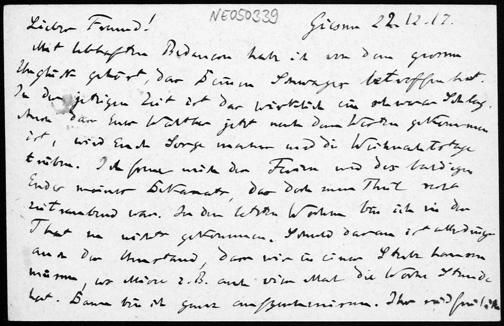 Lieber Freund! NE050339 Giessen 22.12.17.
Mit lebhaftem Bedauern habe ich von dem grossen
Unglück gehört, das Deinen Schwager betroffen hat.
In der jetzigen Zeit ist das wirklich ein schwerer Schlag.
Auch dass Euer Walther jetzt nach dem Westen gekommen
ist, wird Euch Sorge machen und die Weihnachtstage
trüben. Ich freue mich der Ferien und des baldigen
Endes meines Dekanats, das doch zum Theil recht
zeitraubend war. In den letzten Wochen bin ich in der
That zu nichts gekommen. Schuld daran ist allerdings
auch der Umstand, dass wir in einer Stube hausen
müssen, wo z.B. auch vier Mal die Woche Stunde
hat. Dann bin ich ganz aufgeschmissen. Ihr seid